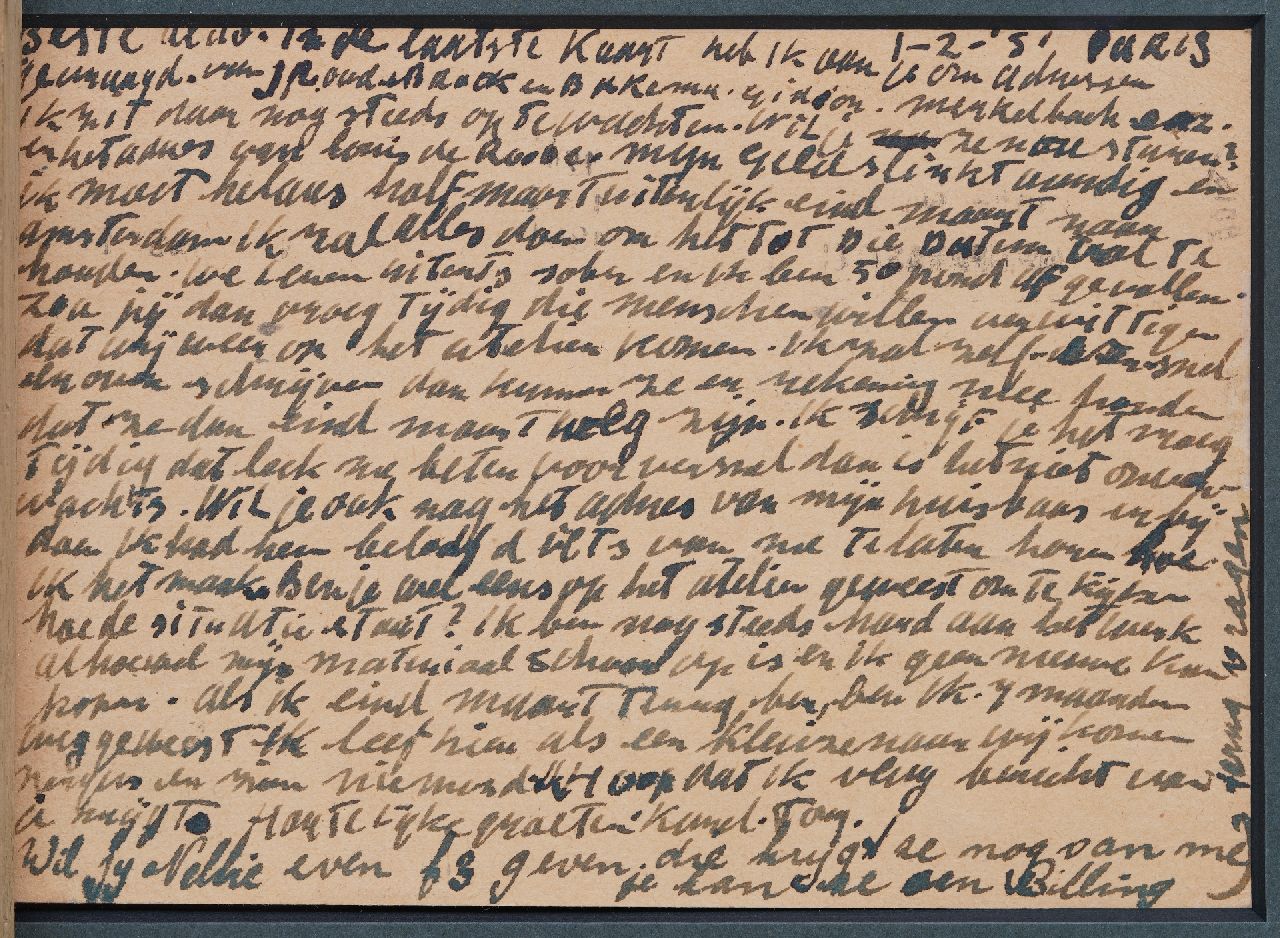 Beste Aldo. In de laatste Kaart heb ik aan je om adressen 1-2-'51 PARIS
gevraagd. van J.P. oud. Brock en Bakema. gidion. merkelbach enz.
ik zit daar nog steeds op te wachten. Wil je ze nou sturen?
en het adres van Louis de mijn geld slinkt aardig en
ik moet helaas half maart uiterlijk eind maart naar
Amsterdam ik zal alles doen om het tot die datum vol te
houden. we leven uiterts sober en ik ben 50 pond af gevallen.
zou jij dan vroeg tijdig die menschen willen verwittigen
dat wij weer op het atelier komen. ik zal zelf snel
schrijven dan kunnen ze er rekening mee houden
dat ze dan eind maart weg zijn. ik schrijf je het vroeg
tijdig dat leek me beter voor dan is het niet onver
wachts. Wil je ook nag het adres van mijn huisbaas erbij
doen ik had hem beloofd iets van me te laten horen hoe
ik het maak. Ben je wel eens op het atelier geweest om te kijken
hoe de situatie staat? ik ben nog steeds hard aan het werk
alhoewel mijn materiaal schoon op is en ik geen nieuwe kan
kopen. als ik eind maart terug ben, ben ik 7 maanden
weg geweest ik leef hier als een kluizenaar wij komen
nergens en zien niemand. Hoop dat ik vlug bericht van
je krijgt. Hartelijke groeten. Karel. Tony.
Wil jy Nellie even f3 geven. die krijgt ze nog van me
je kan ze aan Billing
terug vragen